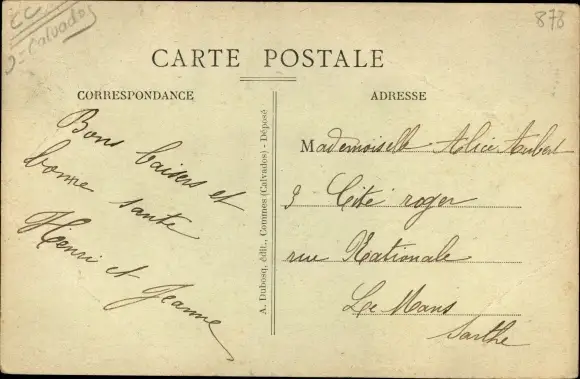 CC
Calvados
878
CARTE POSTALE
CORRESPONDANCE
ADRESSE
Bons baisers et
bonne sante
Henri et Jeanne
A. Dubosq, édit., Commes (Calvados) - Déposé
Mademoiselle Alice Aubert
9 Cité roger
rue Nationale
Le Mans
Sarthe